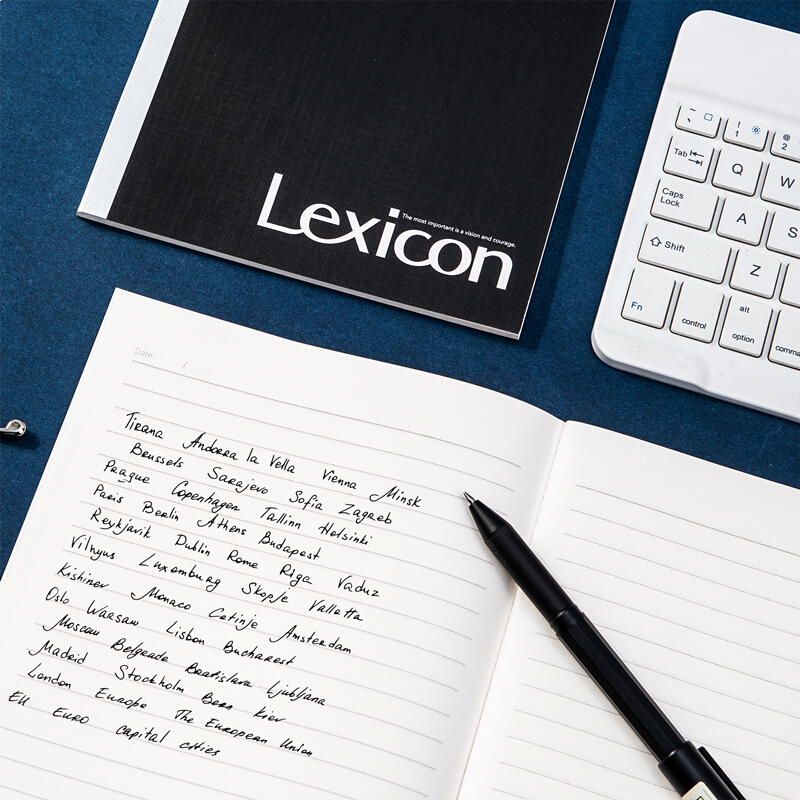 Lexicon
The most important is a vision and courage.
~ `
! 1
@ 2
Tab
Q
W
Caps Lock
A
S
Shift
Z
Fn
control
alt option
Date:
Tirana Andorra la Vella Vienna Minsk
Brussels Sarajevo Sofia Zagreb
Prague Copenhagen Tallinn Helsinki
Paris Berlin Athens Budapest
Reykjavik Dublin Rome Riga Vaduz
Vilnyus Luxemburg Skopje Valletta
Kishinev Monaco Cetinje Amsterdam
Oslo Warsaw Lisbon Bucharest
Moscow Belgrade Bratislava Ljubljana
Madrid Stockholm Bern Kiev
London Europe The European Union
EU Euro capital cities